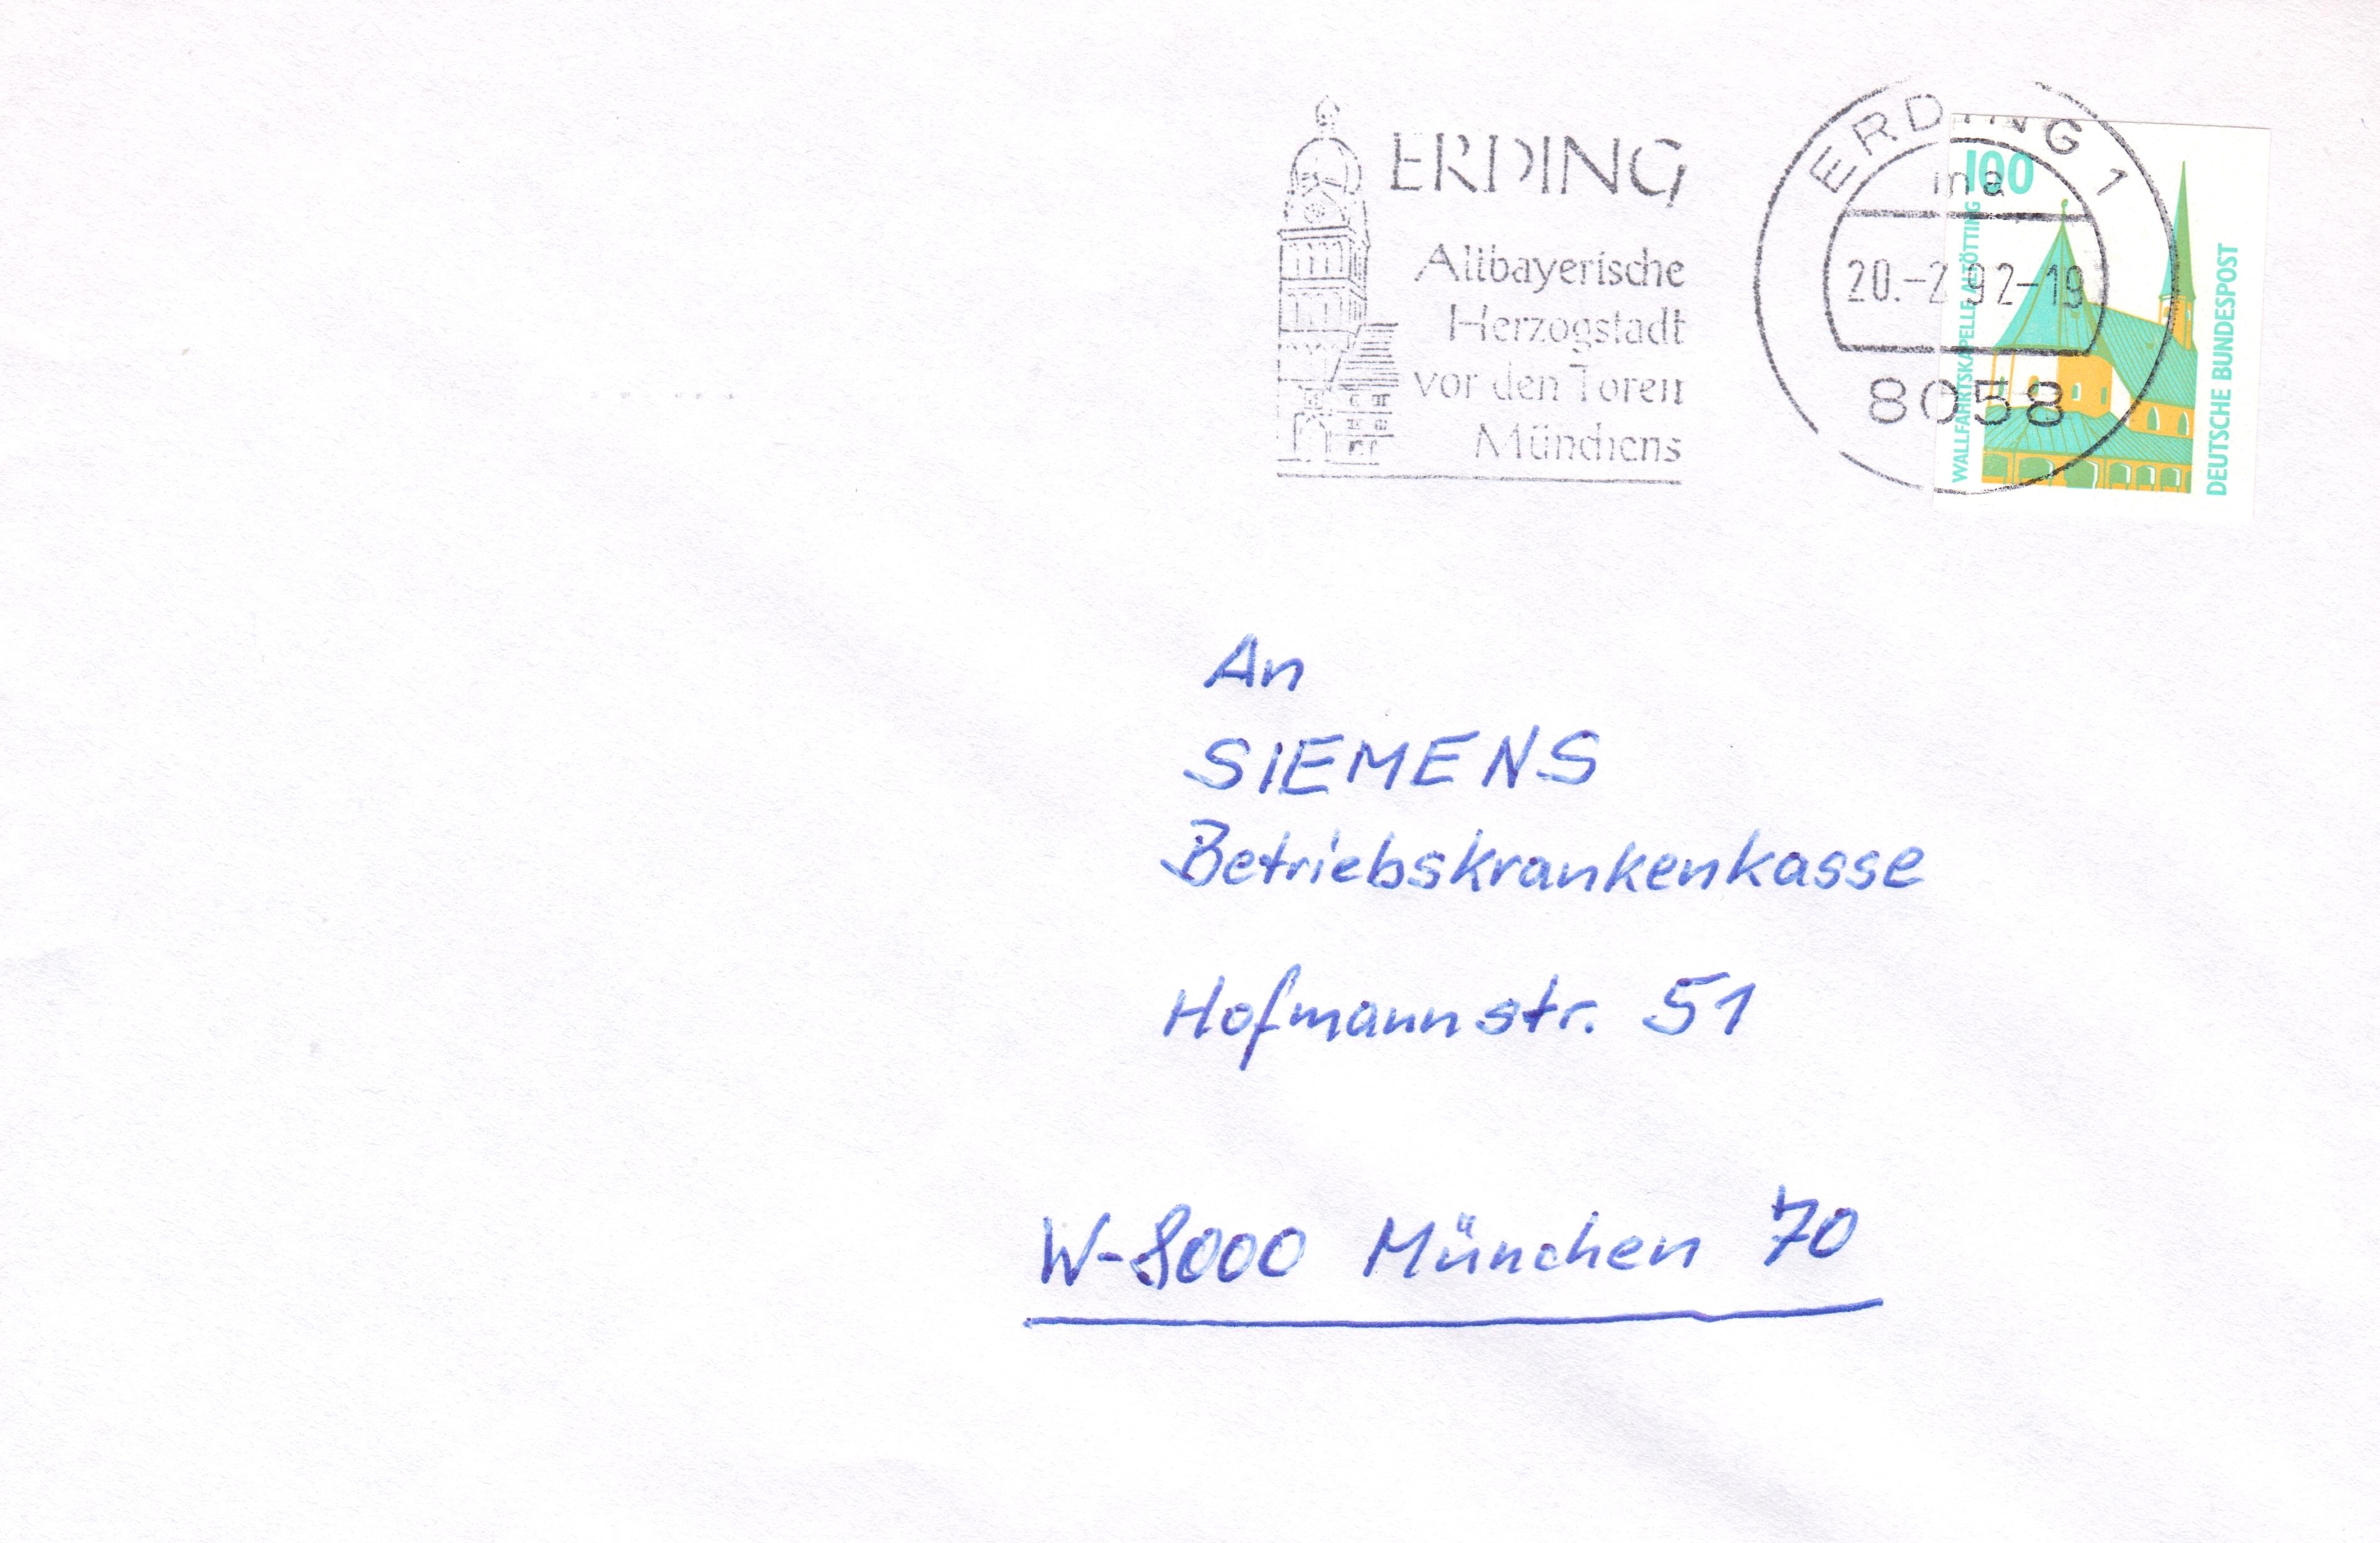 ERDING
Altbayerische
Herzogstadt
vor den Toren
Münchens
ERDING 1
ma
20.-2.92-19
8058
100
WALLFAHRTSKAPELLE ALTÖTTING
DEUTSCHE BUNDESPOST
An
SIEMENS
Betriebskrankenkasse
Hofmannstr. 51
W-8000 München 70